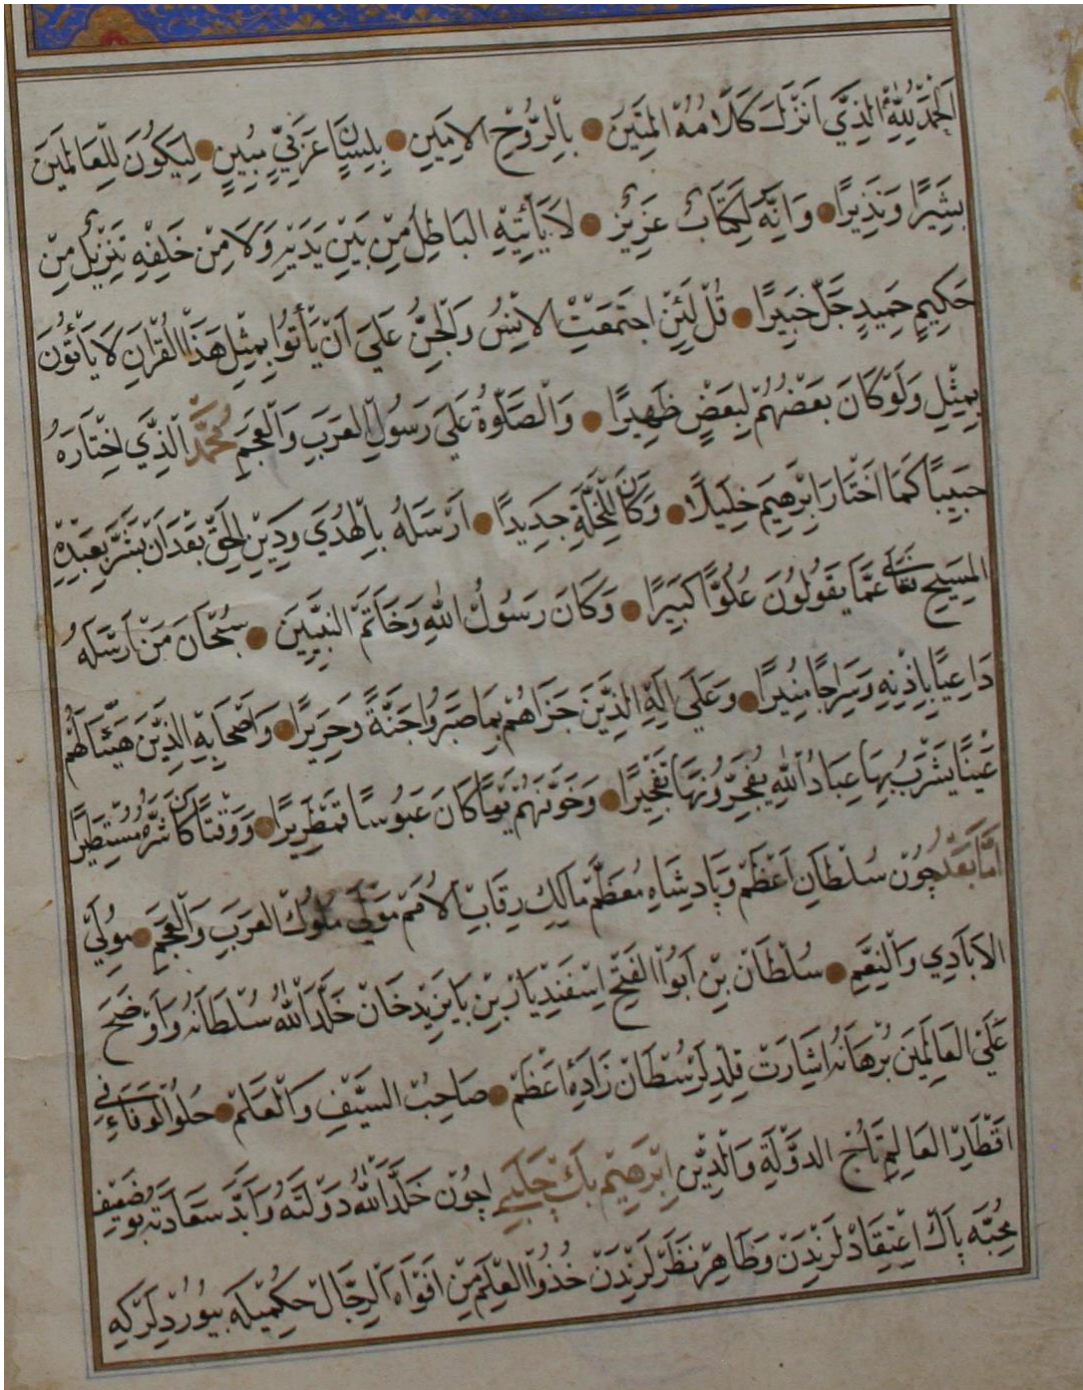 اَلْحَمْدُ لِلّٰهِ الَّذِي اَنْزَلَ كَلَامُهُ الْمَتِينَ ● بِالرُّوحِ الْاَمِينِ ● بِلِسَانٍ عَرَبِيٍّ مُبِينٍ ● لِيَكُونَ لِلْعَالَمِينَ
بَشِيرًا وَنَذِيرًا ● وَاِنَّهُ لَكِتَابٌ عَزِيزٌ ● لَا يَأْتِيهِ الْبَاطِلُ مِنْ بَيْنِ يَدَيْهِ وَلَا مِنْ خَلْفِهِ تَنْزِيلٌ مِنْ
حَكِيمٍ حَمِيدٍ جَلَّ خَبِيرًا ● قُلْ لَئِنِ اجْتَمَعَتِ الْاِنْسُ وَالْجِنُّ عَلَى اَنْ يَأْتُوا بِمِثْلِ هَذَا الْقُرْاٰنِ لَا يَأْتُونَ
بِمِثْلِهِ وَلَوْ كَانَ بَعْضُهُمْ لِبَعْضٍ ظَهِيرًا ● وَالصَّلٰوةُ عَلَى رَسُولِ الْعَرَبِ وَالْعَجَمِ مُحَمَّدٍ الَّذِي اخْتَارَهُ
حَبِيبًا كَمَا اخْتَارَ اِبْرٰهِيمَ خَلِيلًا ● وَكَانَ لِلْخُلَّةِ جَدِيدًا ● اَرْسَلَهُ بِالْهُدَى وَدِينِ الْحَقِّ بَعْدَ اَنْ بَشَّرَ بِعَبْدِهِ
الْمَسِيحِ تَعَالَى عَمَّا يَقُولُونَ عُلُوًّا كَبِيرًا ● وَكَانَ رَسُولُ اللّٰهِ وَخَاتَمُ النَّبِيِّينَ ● سُبْحَانَ مَنْ اَرْسَلَهُ
دَاعِيًا بِاِذْنِهِ وَسِرَاجًا مُنِيرًا ● وَعَلَى اٰلِهِ الَّذِينَ جَزَاهُمْ بِمَا صَبَرُوا جَنَّةً وَحَرِيرًا ● وَاَصْحَابِهِ الَّذِينَ هَيَّئَا لَهُمْ
عَيْنًا يَشْرَبُ بِهَا عِبَادُ اللّٰهِ يُفَجِّرُونَهَا تَفْجِيرًا ● وَخَوَّنَهُمْ يَوْمًا كَانَ عَبُوسًا قَمْطَرِيرًا ● وَوَقْتًا كَانَ شَرُّهُ مُسْتَطِيرًا
اَمَّا بَعْدُ چُونْ سُلْطَانِ اَعْظَمْ وَپَادِشَاهِ مُعَظَّمْ مَالِكِ رِقَابِ الْاُمَمْ مَوْلَى مُلُوكِ الْعَرَبِ وَالْعَجَمِ ● مُولِي
الْاَيَادِي وَالنِّعَمِ ● سُلْطَانْ بْنِ اَبُوا الْفَتْحِ اِسْفَنْدِيَارْ بِنْ بَايَزِيدْ خَانْ خَلَّدَ اللّٰهُ سُلْطَانَهُ وَاَوْضَحَ
عَلَى الْعَالَمِينَ بُرْهَانَهُ اِشَارَتْ قِلْدِلَرْ سُلْطَانْ زَادَۀِ اَعْظَمْ ● صَاحِبُ السَّيْفِ وَالْعَلَمْ ● حُلْوُ الْوَفَاءِ فِي
اَقْطَارِ الْعَالَمِ تَاجُ الدَّوْلَةِ وَالدِّينْ اِبْرٰهِيمْ بَاكْ چَلَبِي اِچُونْ خَلَّدَ اللّٰهُ دَوْلَتَهُ وَاَبَّدَ سَعَادَتَهُ بُو ضَعِيفِ
مُحِبُّهُ پَاكْ اِعْتِقَادْلَرِنْدَنْ وَطَاهِرْ نَظَرْلَرِنْدَنْ خُذُوا الْعِلْمَ مِنْ اَفْوَاهِ الرِّجَالْ حُكْمِيلَه بُيُورْدِلَرْ كِه